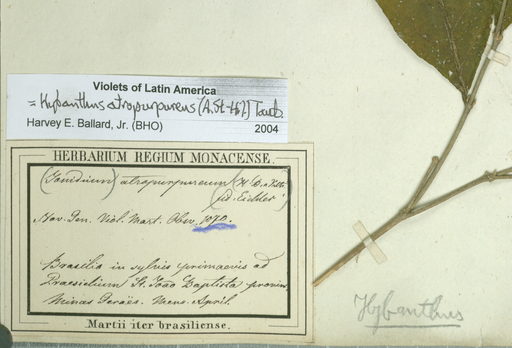 Violets of Latin America
= Hybanthus atropurpureus (A. St-Hil.) Taub.
Harvey E. Ballard, Jr. (BHO)
2004
HERBARIUM REGIUM MONACENSE.
(Jonidium) atropurpureum
Eichler
Nov. Gen. Viol. Mart. Obs. 1070.
Brasilia in sylvis primaevis ad
Praesidium St. João Baptista provin
Minas Geraës. Mens. April.
Martii iter brasiliense.
Hybanthus